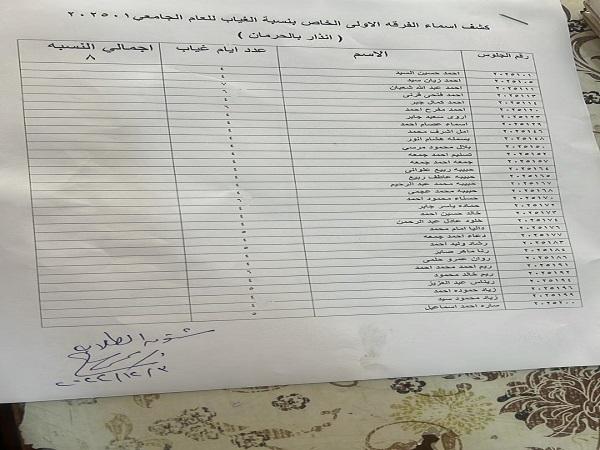 كشف اسماء الفرقه الاولى الخاص بنسبة الغياب للعام الجامعى
( انذار بالحرمان )
رقم الجلوس الاسم عدد ايام غياب اجمالي النسبه
٨
٢٠٢٥١٠١ احمد حسين السيد ٤
احمد زيان سيد ٤
٢٠٢٥١١٢ احمد عبد الله شعبان ٧
٢٠٢٥١١٣ احمد فتحى قرنى ٦
٢٠٢٥١١٤ احمد كمال جبر ٤
٢٠٢٥١٢٠ احمد مفرح احمد ٦
٢٠٢٥١٢٣ اروى سعيد جابر ٤
٢٠٢٥١٢٩ اسماء عصام احمد ٤
٢٠٢٥١٤٦ امل اشرف محمد ٤
٢٠٢٥١٤٨ بسمله هشام انور ٤
٢٠٢٥١٥٠ بلال محمود مرسى ٤
٢٠٢٥١٥٢ تسنيم احمد جمعه ٤
٢٠٢٥١٥٧ جمعه احمد جمعه ٤
٢٠٢٥١٦٤ حبيبه ربيع علوانى ٤
٢٠٢٥١٦٥ حبيبه عاطف ربيع ٤
٢٠٢٥١٦٧ حبيبه محمد عبد الرحيم ٤
٢٠٢٥١٦٨ حبيبه محمد عجمى ٤
٢٠٢٥١٧٠ حسناء محمود احمد ٦
٢٠٢٥١٧٢ ياسر جابر ٤
٢٠٢٥١٧٣ خالد حسين احمد ٤
٢٠٢٥١٧٤ خلود عادل عبد الرحمن ٤
٢٠٢٥١٧٦ داليا امام محمد ٥
٢٠٢٥١٧٧ دعاء احمد جمعه ٤
٢٠٢٥١٨٣ رشاد وليد احمد ٥
رنا ماهر صابر ٤
٢٠٢٥١٨٦ روان عمرو حلمى ٤
٢٠٢٥١٩١ ريم احمد محمد احمد ٤
٢٠٢٥١٩٢ ريم خالد محمود ٦
٢٠٢٥١٩٤ ريناس عبد العزيز ٤
٢٠٢٥١٩٦ زياد حموده احمد ٥
٢٠٢٥١٩٩ زياد محمود سيد ٤
٢٠٢٥٢٠٠ ساره احمد اسماعيل ٥
شئون الطلاب